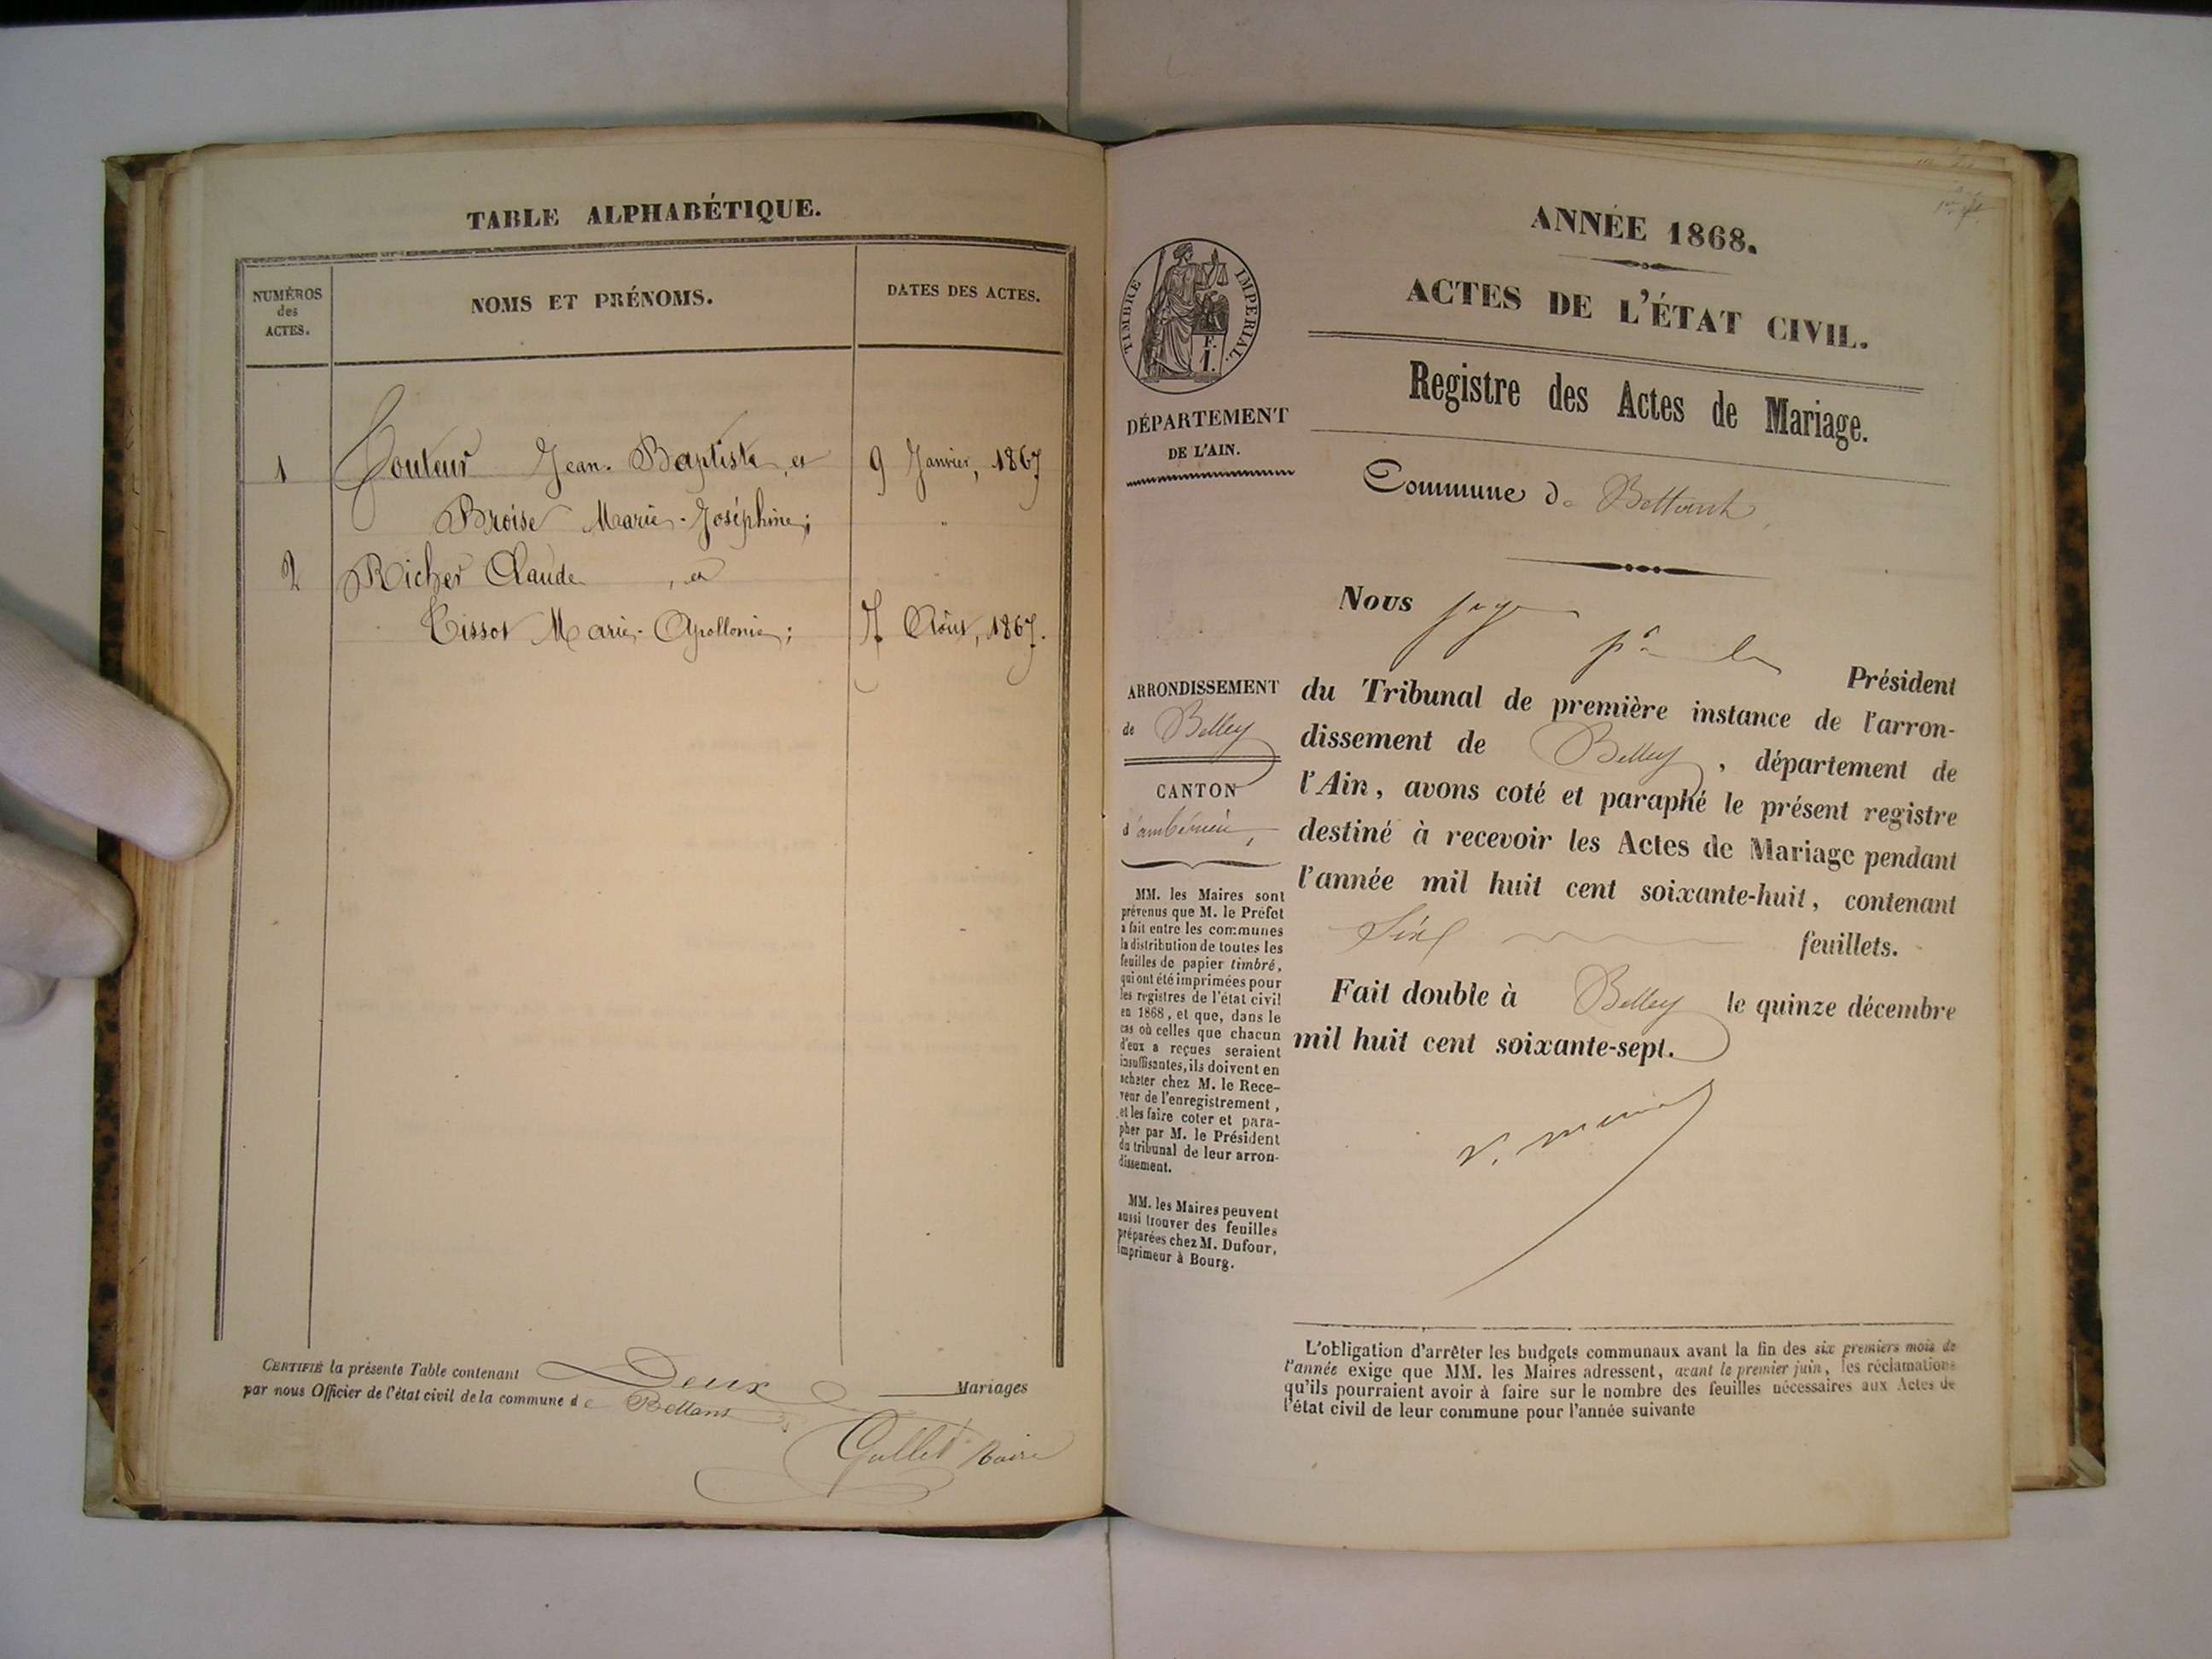 TABLE ALPHABÉTIQUE.
NUMÉROS
des
ACTES.
NOMS ET PRÉNOMS.
DATES DES ACTES.
1 Couteur Jean-Baptiste, et 9 Janvier, 1867
Broise Marie-Joséphine; "
2 Richer Claude , et
Tissot Marie-Apollonie; 7 Août, 1867.
CERTIFIÉ la présente Table contenant Deux Mariages
par nous Officier de l'état civil de la commune de Bettant
Gullet Maire
ANNÉE 1868.
ACTES DE L'ÉTAT CIVIL.
Registre des Actes de Mariage.
Commune de Bettant
TIMBRE IMPÉRIAL.
F.
1.
DÉPARTEMENT
DE L'AIN.
ARRONDISSEMENT
de Belley
CANTON
d'ambérieu,
MM. les Maires sont
prévenus que M. le Préfet
a fait entre les communes
la distribution de toutes les
feuilles de papier timbré,
qui ont été imprimées pour
les registres de l'état civil
en 1868, et que, dans le
cas où celles que chacun
d'eux a reçues seraient
insuffisantes, ils doivent en
acheter chez M. le Rece-
veur de l'enregistrement,
et les faire coter et para-
pher par M. le Président
du tribunal de leur arron-
dissement.
MM. les Maires peuvent
aussi trouver des feuilles
préparées chez M. Dufour,
imprimeur à Bourg.
Nous juge
pr le Président
du Tribunal de première instance de l'arron-
dissement de Belley, département de
l'Ain, avons coté et paraphé le présent registre
destiné à recevoir les Actes de Mariage pendant
l'année mil huit cent soixante-huit, contenant
feuillets.
Fait double à Belley le quinze décembre
mil huit cent soixante-sept.
L'obligation d'arrêter les budgets communaux avant la fin des six premiers mois de
l'année exige que MM. les Maires adressent, avant le premier juin, les réclamations
qu'ils pourraient avoir à faire sur le nombre des feuilles nécessaires aux Actes de
l'état civil de leur commune pour l'année suivante